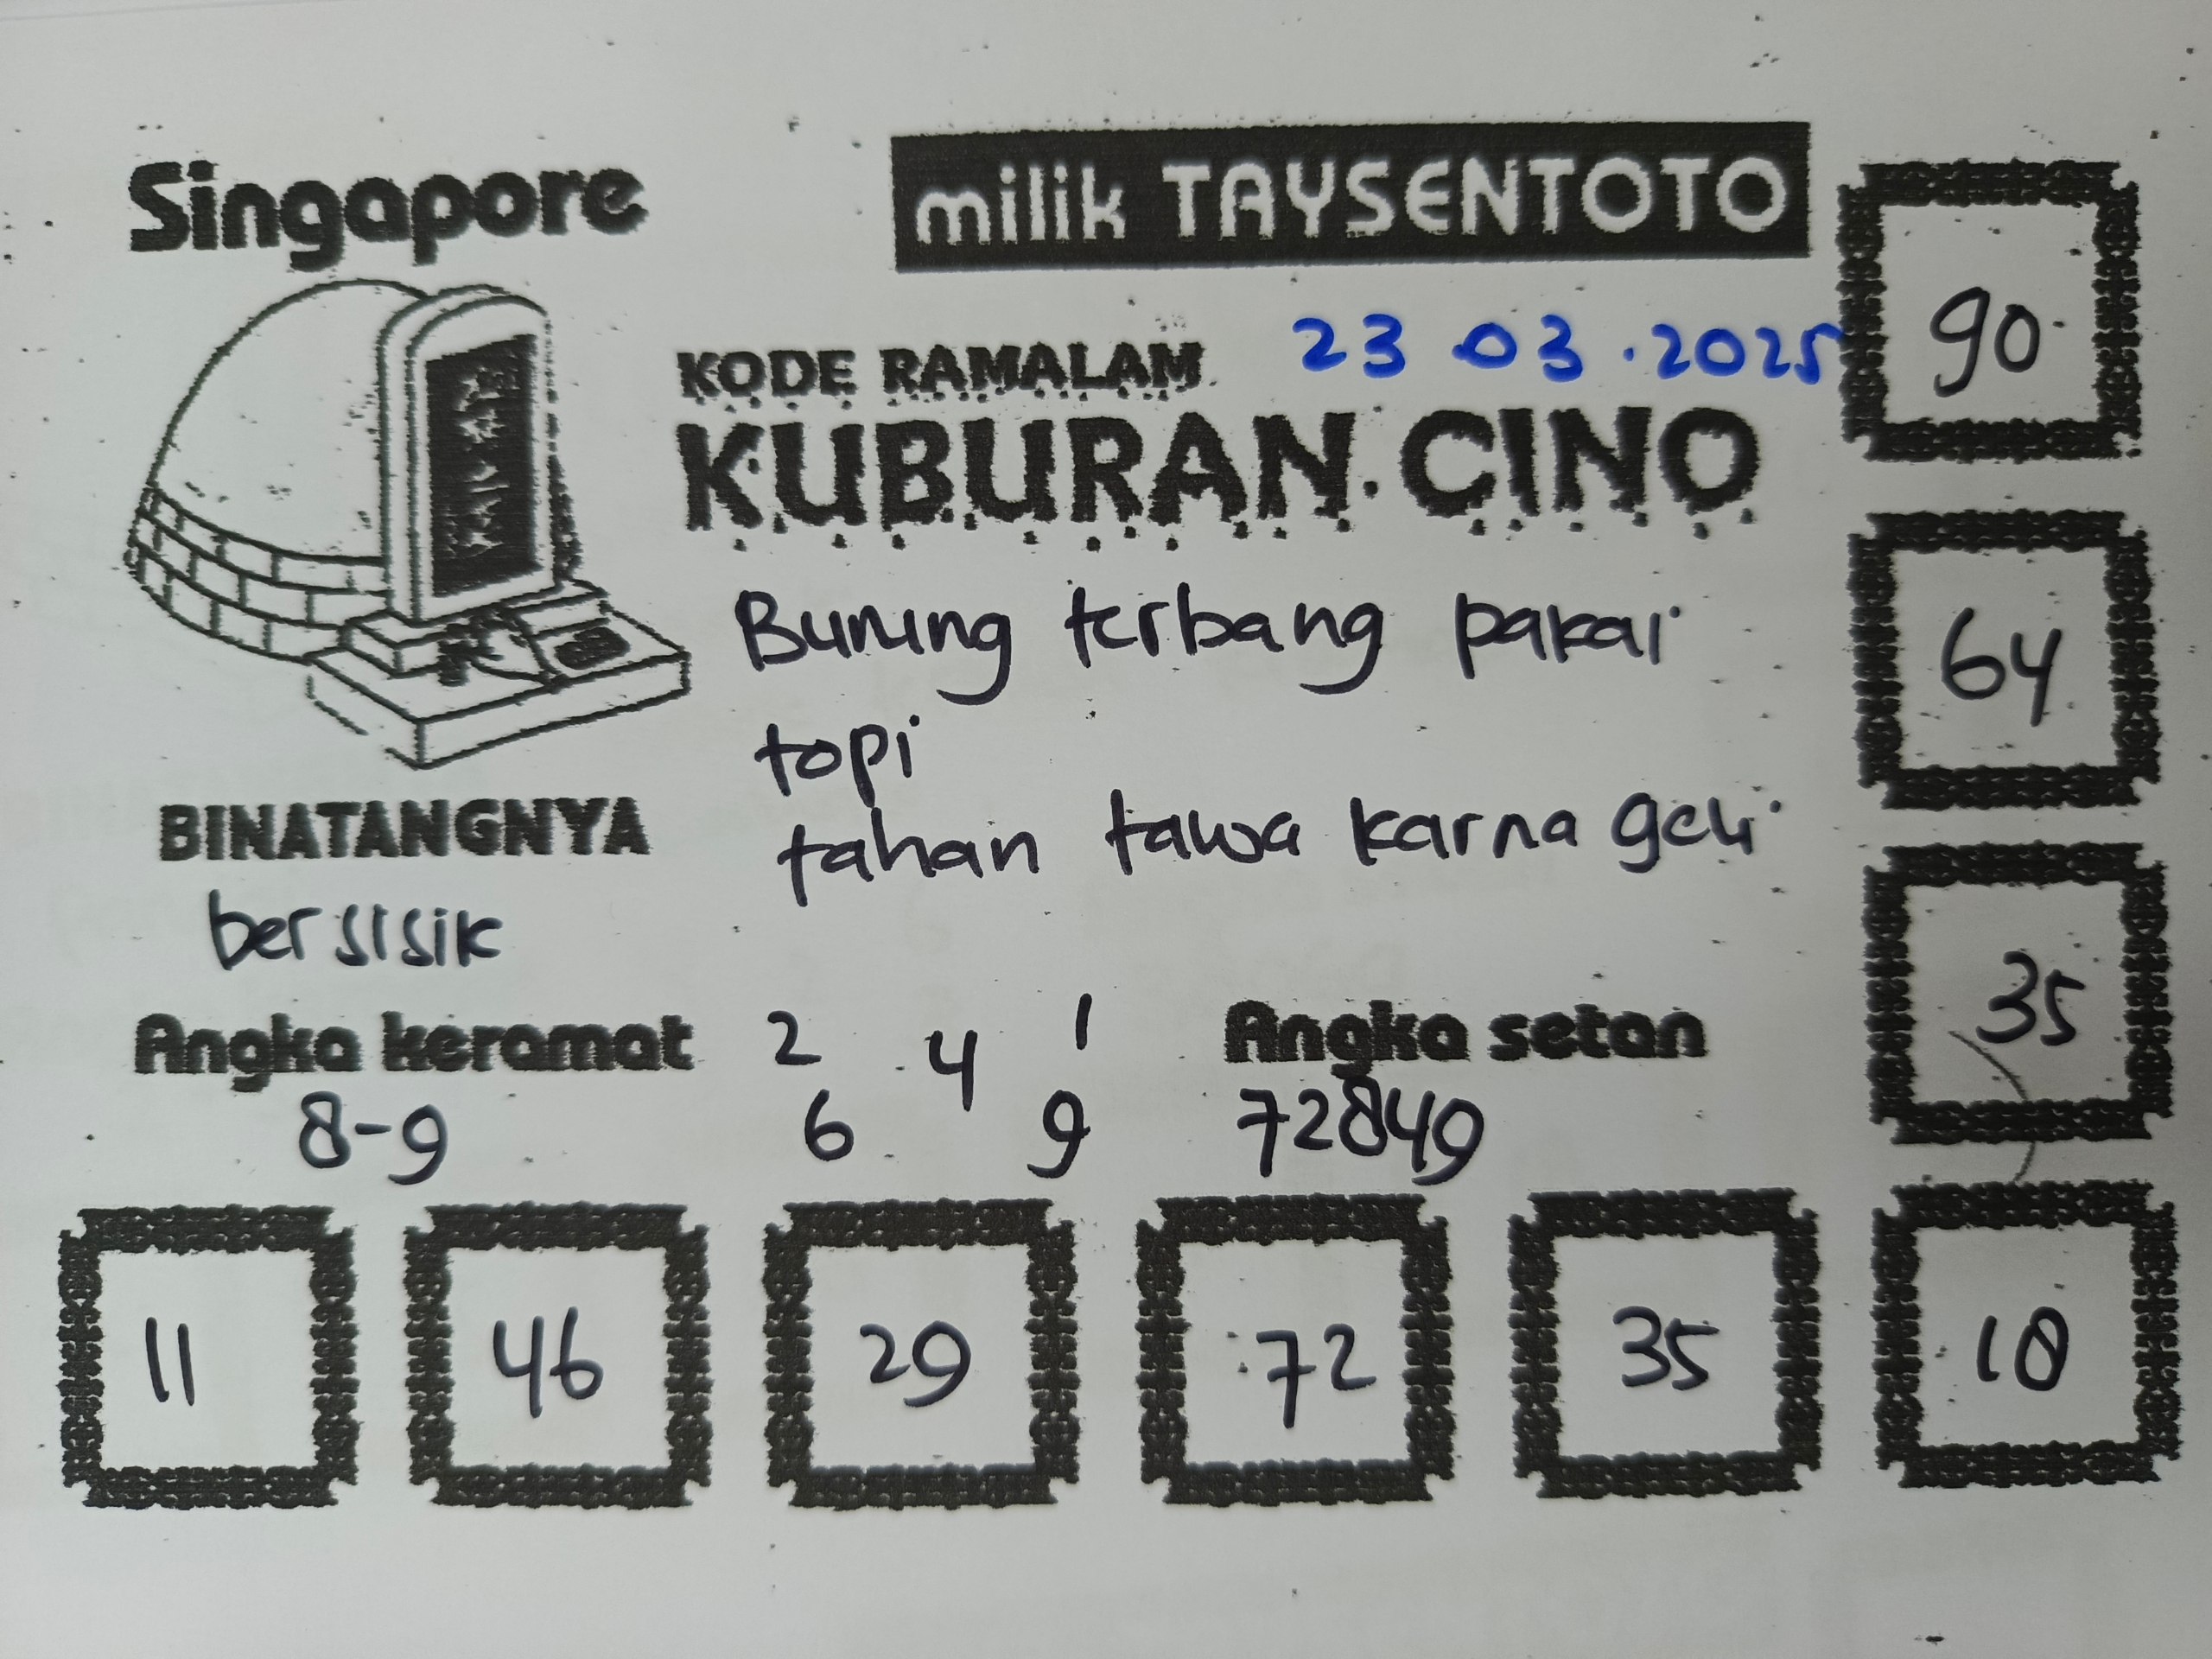 Singapore
milik TAYSENTOTO
90
KODE RAMALAM 23 03.2025
KUBURAN CINO
Burung terbang pakai
topi
64
BINATANGNYA
tahan tawa karna geli
bersisik
35
Angka keramat 2 4 1 Angka setan
8-9 6 9 72849
11 46 29 72 35 18